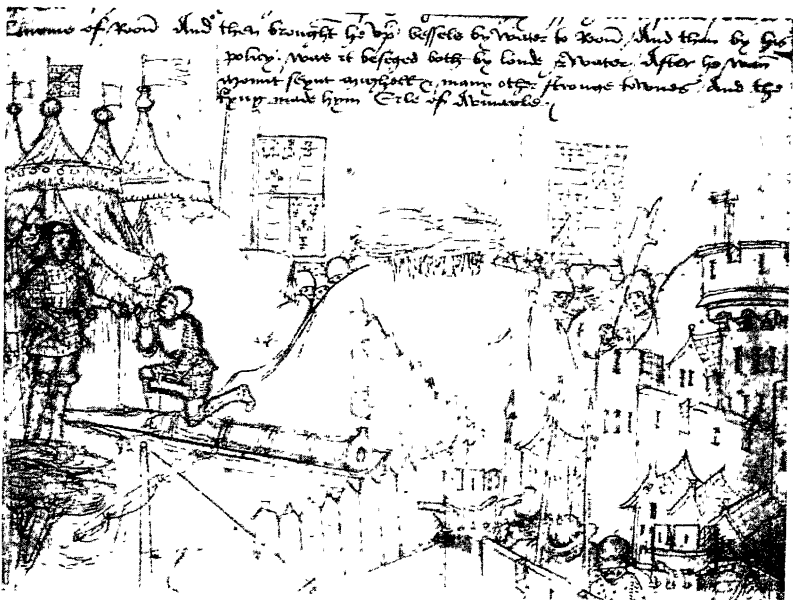 of Roon And then brought he vp vessels by water to Roon / And then by his
policy was it beseged both by londe & water / After he wan
mount seynt mighell & many other stronge townes And the
kyng made hym Erle of Aumarle /